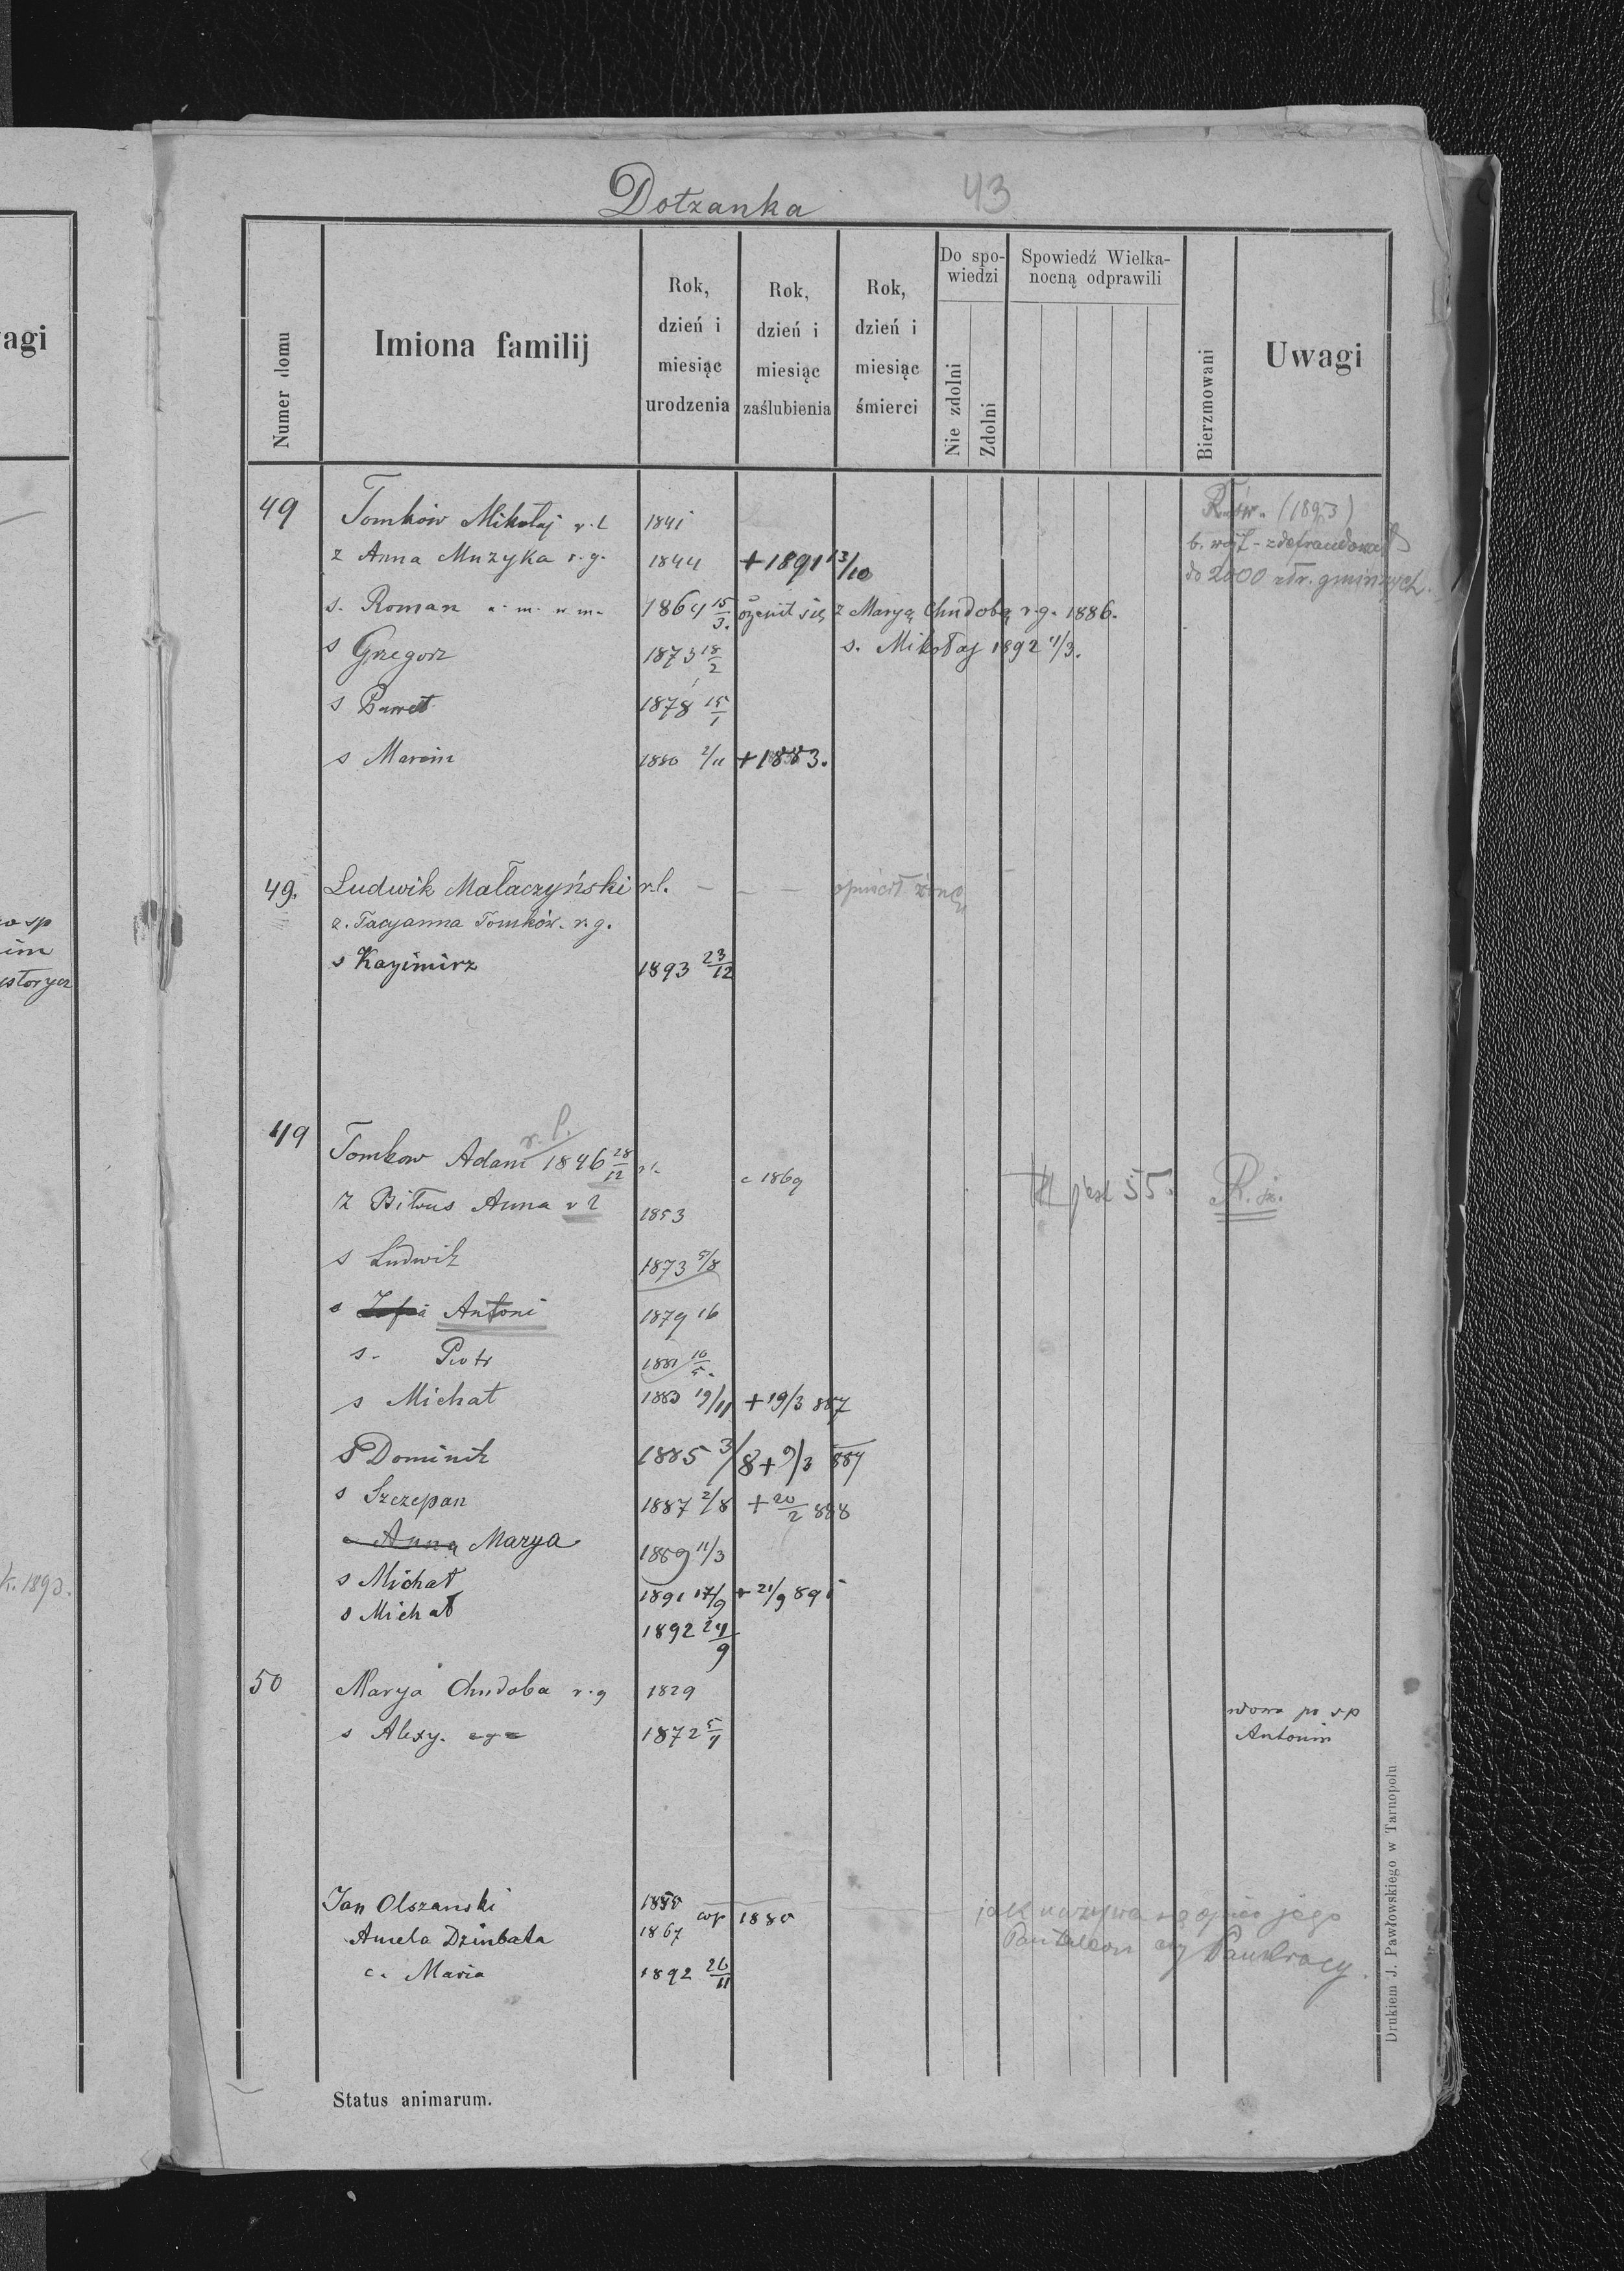 Dołżanka 43
agi
Numer domu
Imiona familij
Rok, dzień i miesiąc urodzenia
Rok, dzień i miesiąc zaślubienia
Rok, dzień i miesiąc śmierci
Do spowiedzi
Nie zdolni
Zdolni
Spowiedź Wielkanocną odprawili
Bierzmowani
Uwagi
49 Tomków Mikołaj r. l. 1841 (1893)
ż Anna Muzyka r. g. 1844 + 1891 13/10 b. wójt - zdefraudował
do 2000 złr. gminnych.
s. Roman 1864 15/3. ożenił się z Maryą Chudobą r. g. 1886.
s Grzegorz 1873 18/2 s. Mikołaj 1892 11/3.
s Paweł 1878 15/1
s Marcin 1880 2/11 + 1883.
49. Ludwik Małaczyński r. l. - - - opuścił żonę
ż. Tacyanna Tomków. r. g.
s Kazimirz 1893 23/12
49 r. l.
Tomkow Adam 1846 28/12 r l. c 1869
Ż Biłous Anna r l 1853 jest 55. R.
s Ludwik 1873 5/8
s Zofia Antoni 1879 16
s. Piotr 1881 10/5.
s Michał 1883 19/11 + 19/3 887
s Dominik 1885 3/8 + 9/3 887
s Szczepan 1887 2/8 + 20/2 888
c Anna Marya 1889 11/3
s Michał 1891 17/9 + 21/9 891
s Michał 1892 24/9
50 Marya Chudoba r. g 1829 wdowa po s p
s Alexy. 1872 5/4 Antonim
Jan Olszanski 1850
Amela Dzinbała 1867 cop 1880 jak nazywa się ojciec jego
Pantaleon czy Pankracy.
c. Maria 1892 26/11
Status animarum.
Drukiem J. Pawłowskiego w Tarnopolu